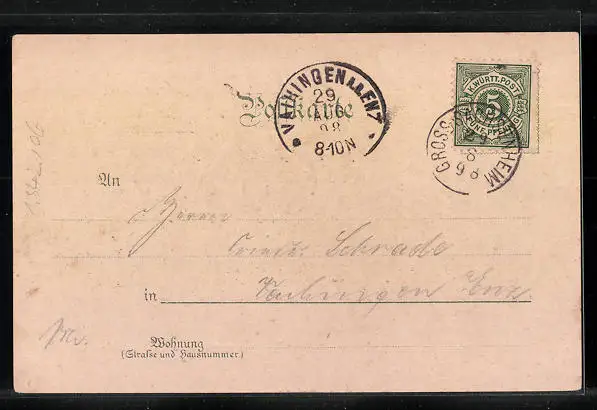 Postkarte
VAIHINGEN A.d. ENZ
29
AUG
98
8-10N
K. WÜRTT. POST
5
FÜNF PFENNIG
GROSS
HEIM
8
98
An
Herrn
Friedr. Schrade
in Vaihingen Enz
Wohnung
(Straße und Hausnummer.)